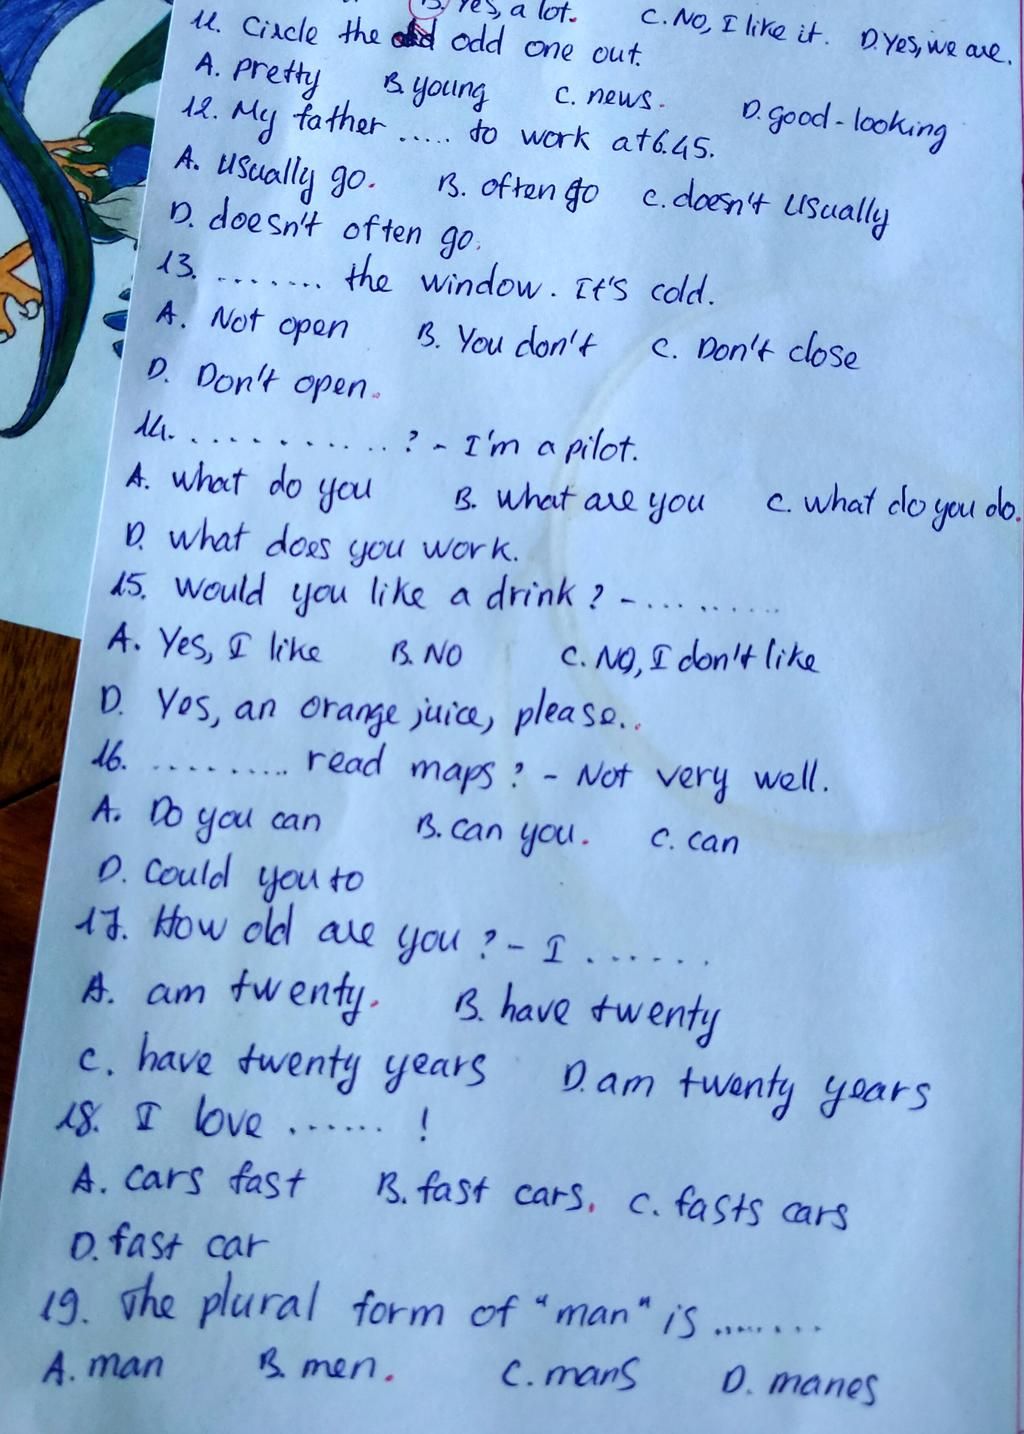 B. Yes, a lot. C. No, I like it. D. Yes, we are.
11. Circle the odd one out.
A. pretty B. young C. news. D. good-looking
12. My father ..... to work at 6.45.
A. usually go. B. often go C. doesn't usually
D. doesn't often go.
13. ....... the window. It's cold.
A. Not open B. You don't C. Don't close
D. Don't open.
14. ...........? - I'm a pilot.
A. what do you B. what are you C. what do you do.
D. what does you work.
15. Would you like a drink? - .........
A. Yes, I like B. NO C. NO, I don't like
D. Yes, an orange juice, please..
16. ......... read maps? - Not very well.
A. Do you can B. can you. C. can
D. Could you to
17. How old are you? - I ......
A. am twenty. B. have twenty
C. have twenty years D. am twenty years
18. I love ...... !
A. cars fast B. fast cars. C. fasts cars
D. fast car
19. The plural form of "man" is ........
A. man B. men. C. mans D. manes